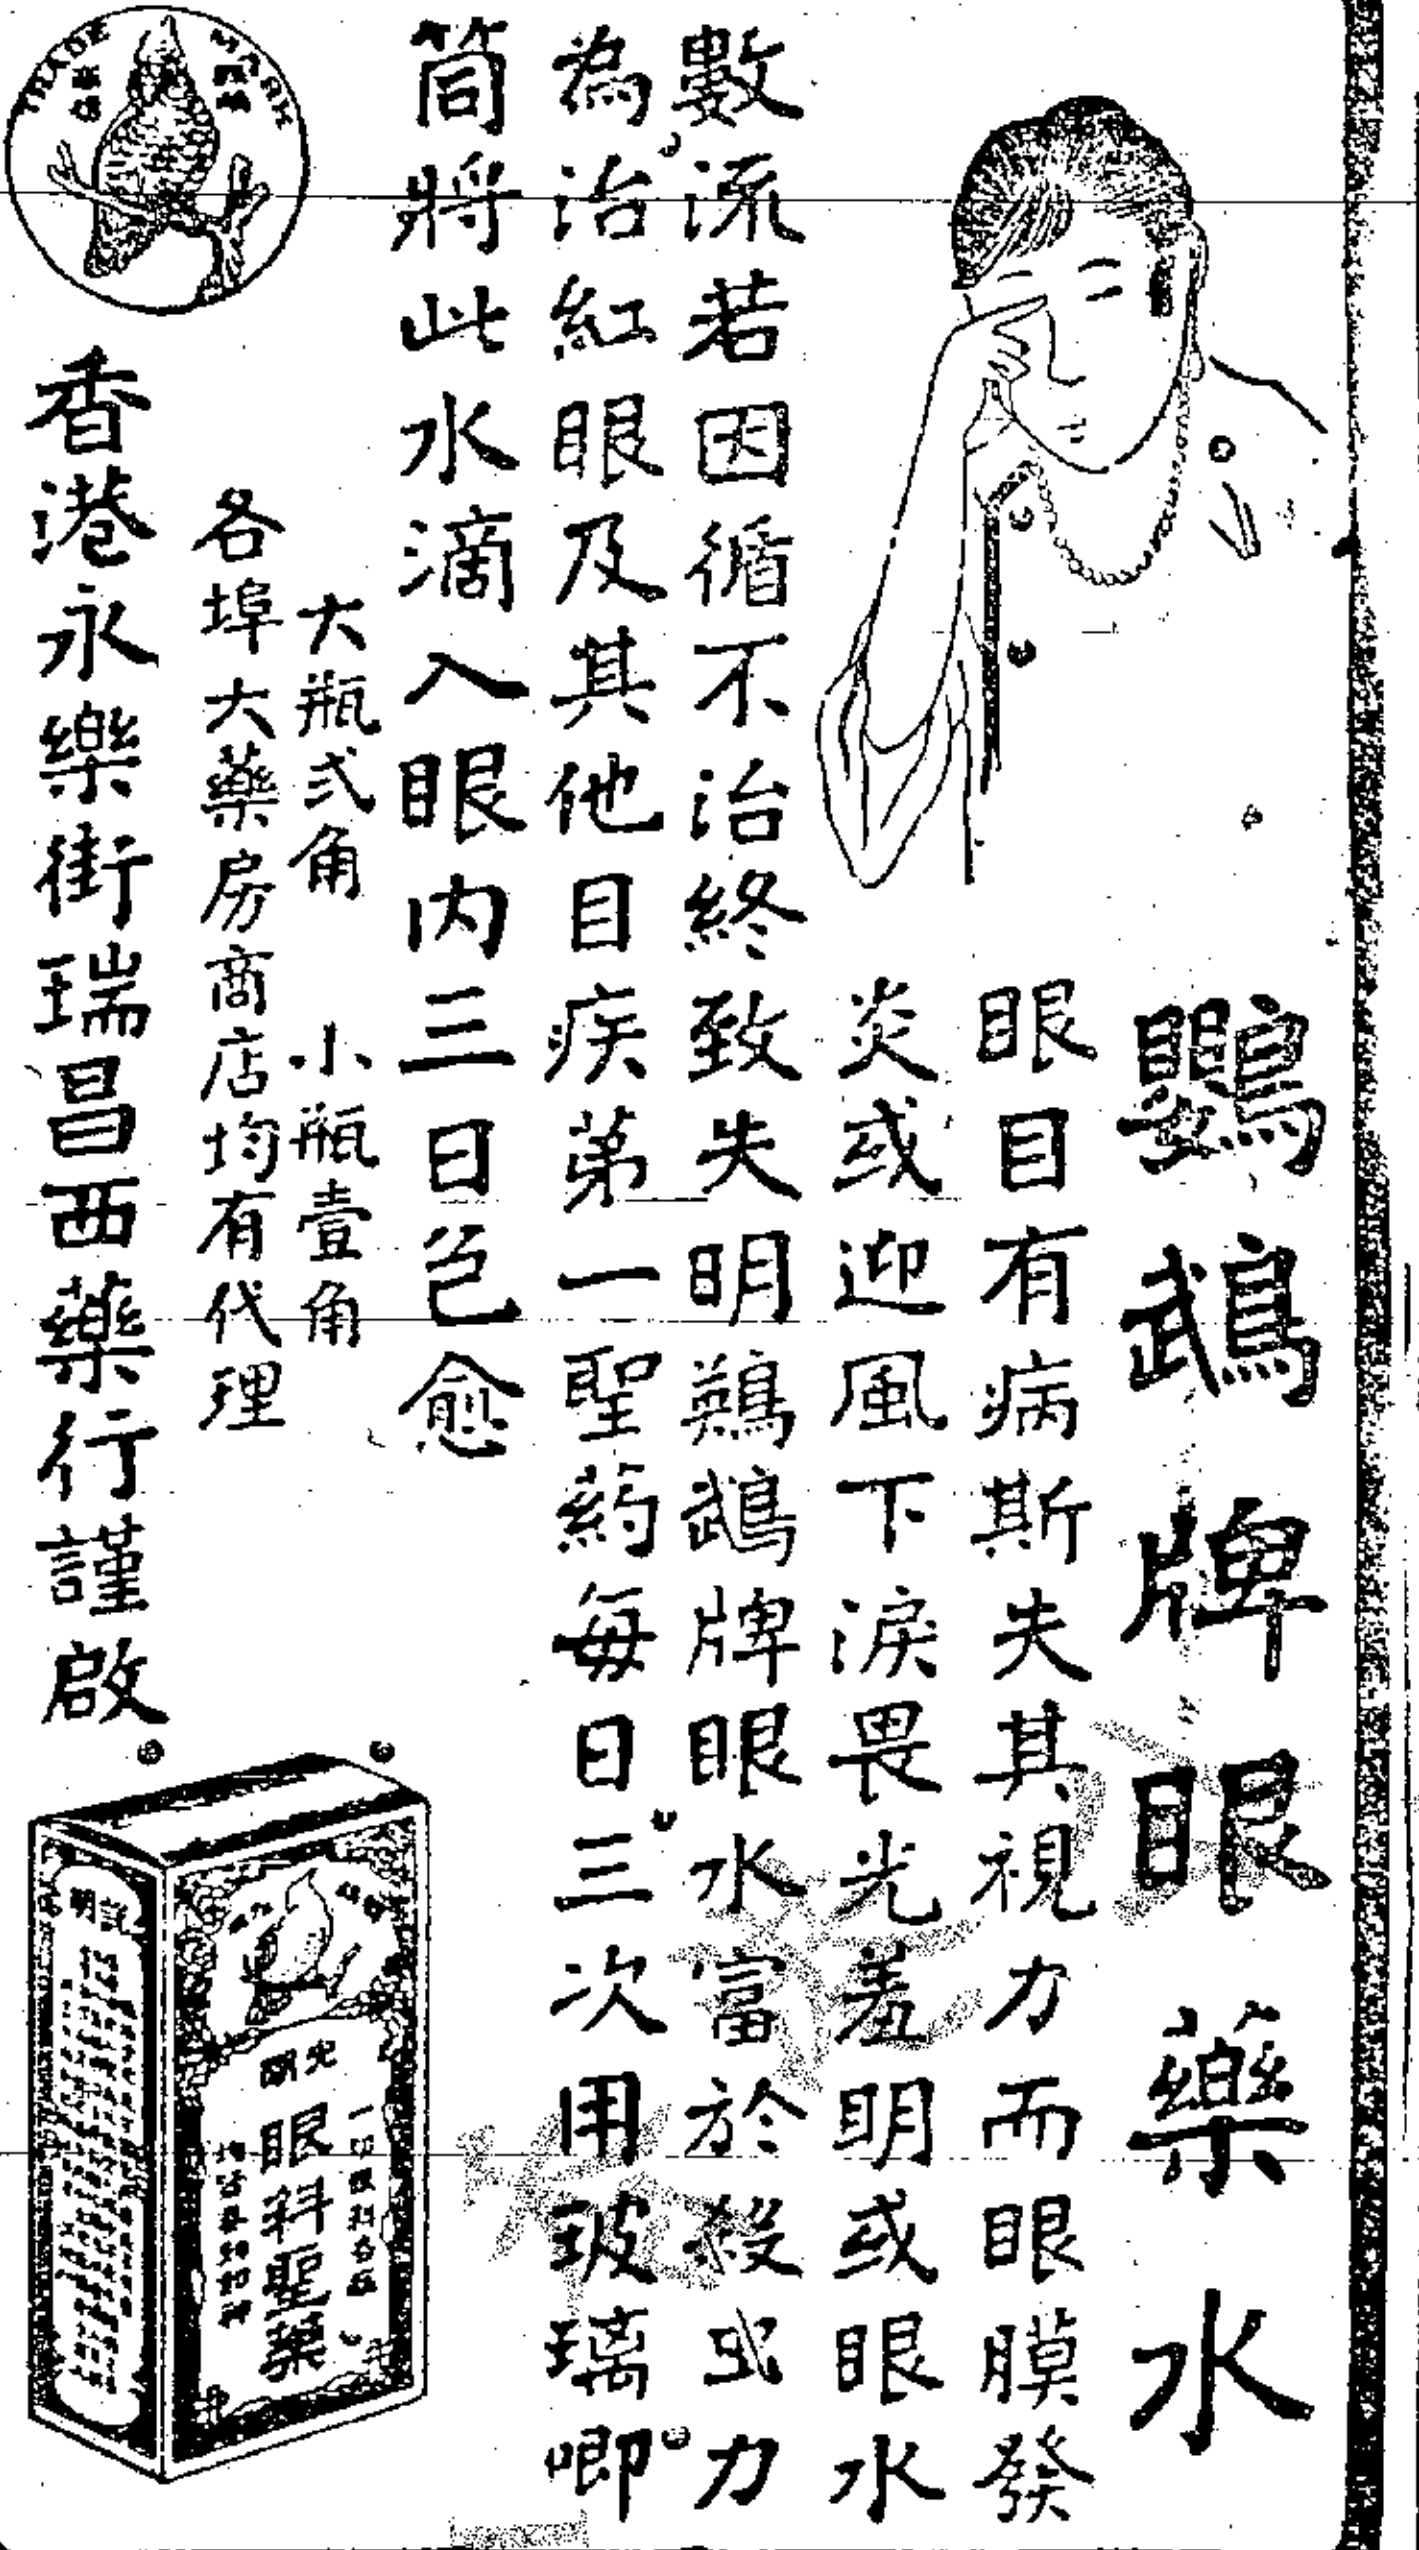 鸚鵡牌眼藥水
眼目有病斯失其視力而眼膜發
炎或迎風下淚畏光羞明或眼水
數流若因循不治終致失明鸚鵡牌眼水富於殺虫力
為治紅眼及其他目疾第一聖葯每日三次用玻璃唧
筒將此水滴入眼內三日包愈
大瓶弍角 小瓶壹角
各埠大藥房商店均有代理
香港永樂街瑞昌西藥行謹啟
TRADE MARK
說明
光明
眼科聖藥